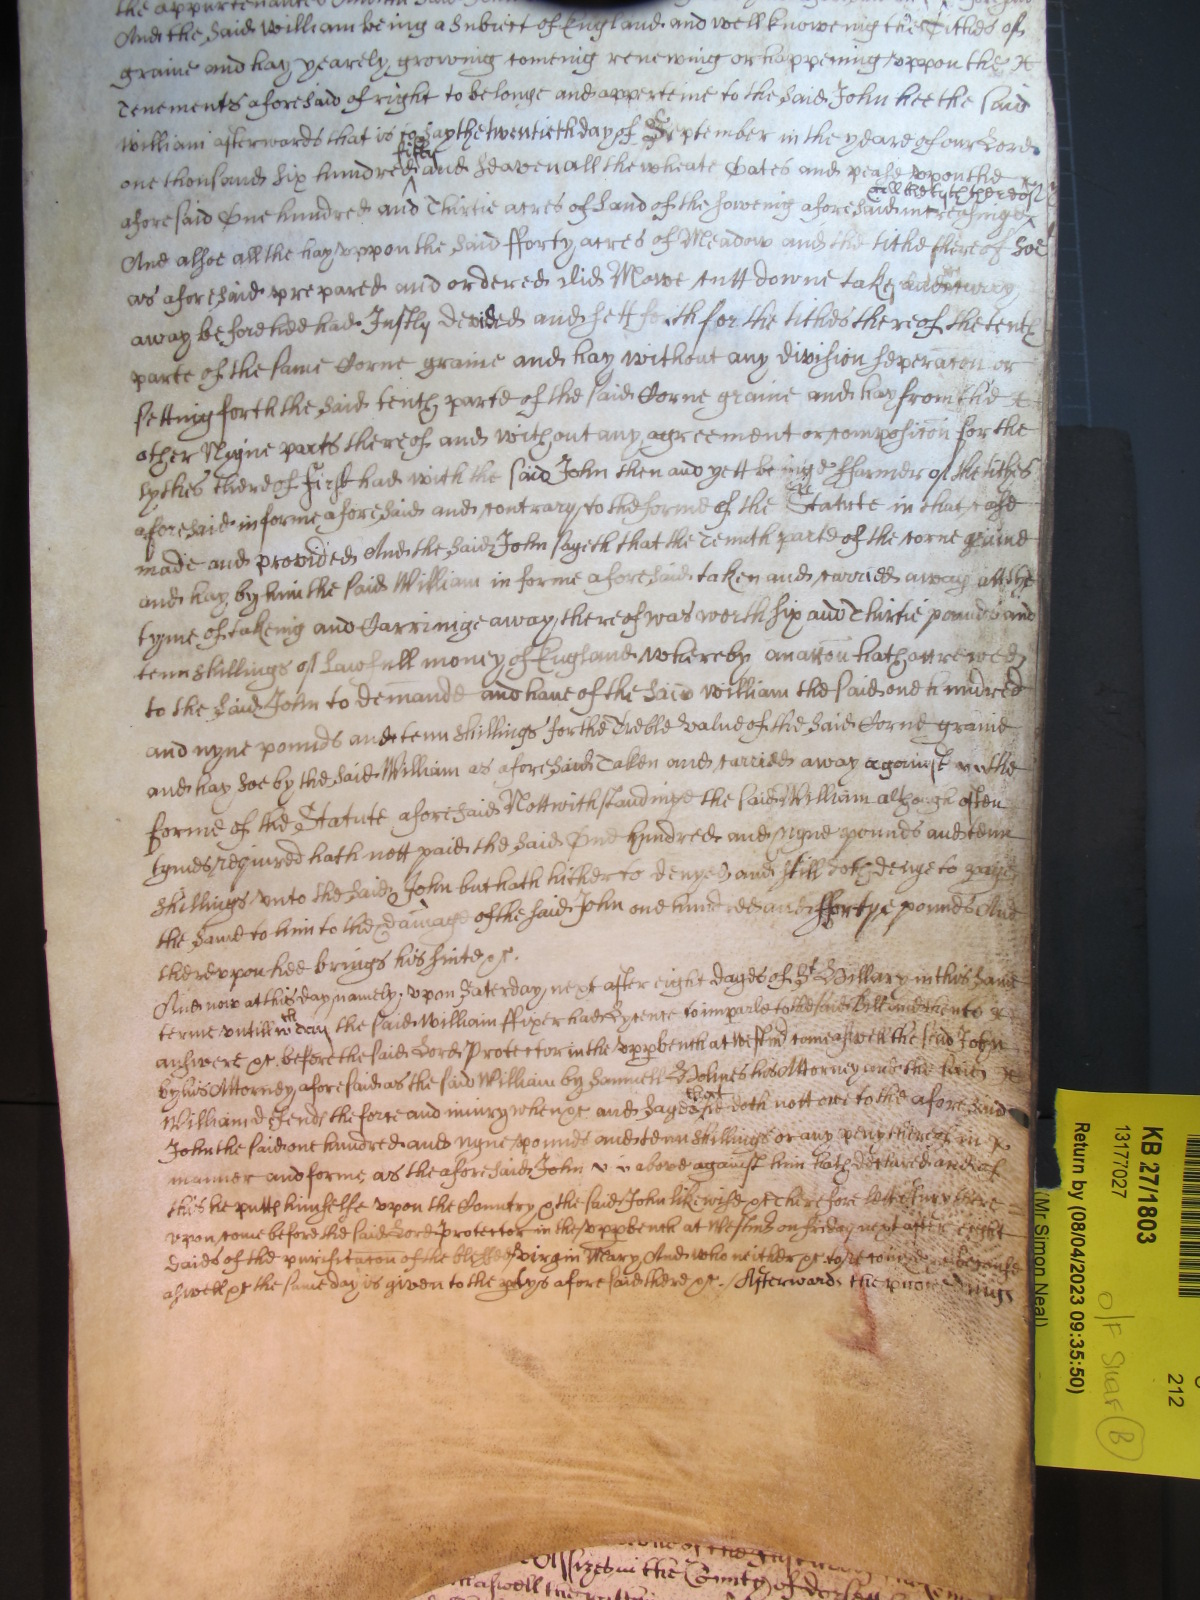 the appurtenances
And the said William being a Subiect of England and well knoweing the Tithes of
graine and hay yearely growing comeing renewing or happening vppon the
Tenements aforesaid of right to belonge and apperteine to the said John hee the said
William afterwards that is to say the twentieth day of September in the yeare of our Lord
one thousand six hundred fiftie and seaven all the wheate Oates and pease vpon the
aforesaid One hundred and Thirtie acres of Land of the soweing aforesaid increasinge all the tythe thereof
And alsoe all the hay vppon the said fforty acres of Meadow and the tithe thereof soe
as aforesaid prepared and ordered did Mowe cutt downe take and carry
away before hee had Justly devided and sett forth for the tithes thereof the tenth
parte of the same Corne graine and hay without any division seperacon or
setting forth the said tenth parte of the said Corne graine and hay from the
other Nyne parts thereof and without any agreement or composicon for the
tythes thereof First had with the said John then and yett beinge ffarmer of the tithes
aforesaid in forme aforesaid and contrary to the forme of the Statute in that case
made and provided And the said John sayeth that the Tennth parte of the corne graine
and hay by him the said William in forme aforesaid taken and carried away att the
tyme of takeing and Carringe away thereof was worth six and Thirtie pounds and
tenn shillings of Lawfull money of England whereby an accon hath accrewed
to the said John to demande and haue of the said William the said one hundred
and nyne pounds and tenn shillings for the Treble value of the said Corne graine
and hay soe by the said William as aforesaid Taken and carried away against the
forme of the Statute aforesaid Nottwithstandinge the said William although often
tymes required hath nott paid the said One hundred and Nyne pounds and tenn
shillings vnto the said John but hath hitherto denyed and still doth denye to paye
the same to him to the damage of the said John one hundred and ffortye pounds And
therevpon hee brings his suite &c.
And now at this day namely vpon Saterday next after eight dayes of St Hillary in this same
terme vntill wch day the said William ffixer had Lycence to imparle to the said Bill and then to
answere &c. before the said Lord Protector in the vpp bench at Westmr come aswell the said John
by his Attorney aforesaid as the said William by Samuell Holmes his Attorney and the said
William defends the force and iniury when &c and sayes that he doth nott owe to the aforesaid
John the said one hundred and nyne pounds and tenn shillings or any peny thereof in
manner and forme as the aforesaid John above against him hath declared and of
this he putts himselfe vpon the Country & the said John likewise &c therefore lett a Jury there
vpon come before the said Lord Protector in the vpp bench at Westmr on friday next after eight
daies of the purificacon of the blessed virgin Mary And who neither &c to recognize because
aswell &c the same day is given to the ptys aforesaid there &c. Afterwards the proceedings
Assizes in the County of
aswell the
KB 27/1803
13177027
Return by (08/04/2023 09:35:50)
(Mr Simon Neal)
212
O/F Shelf B